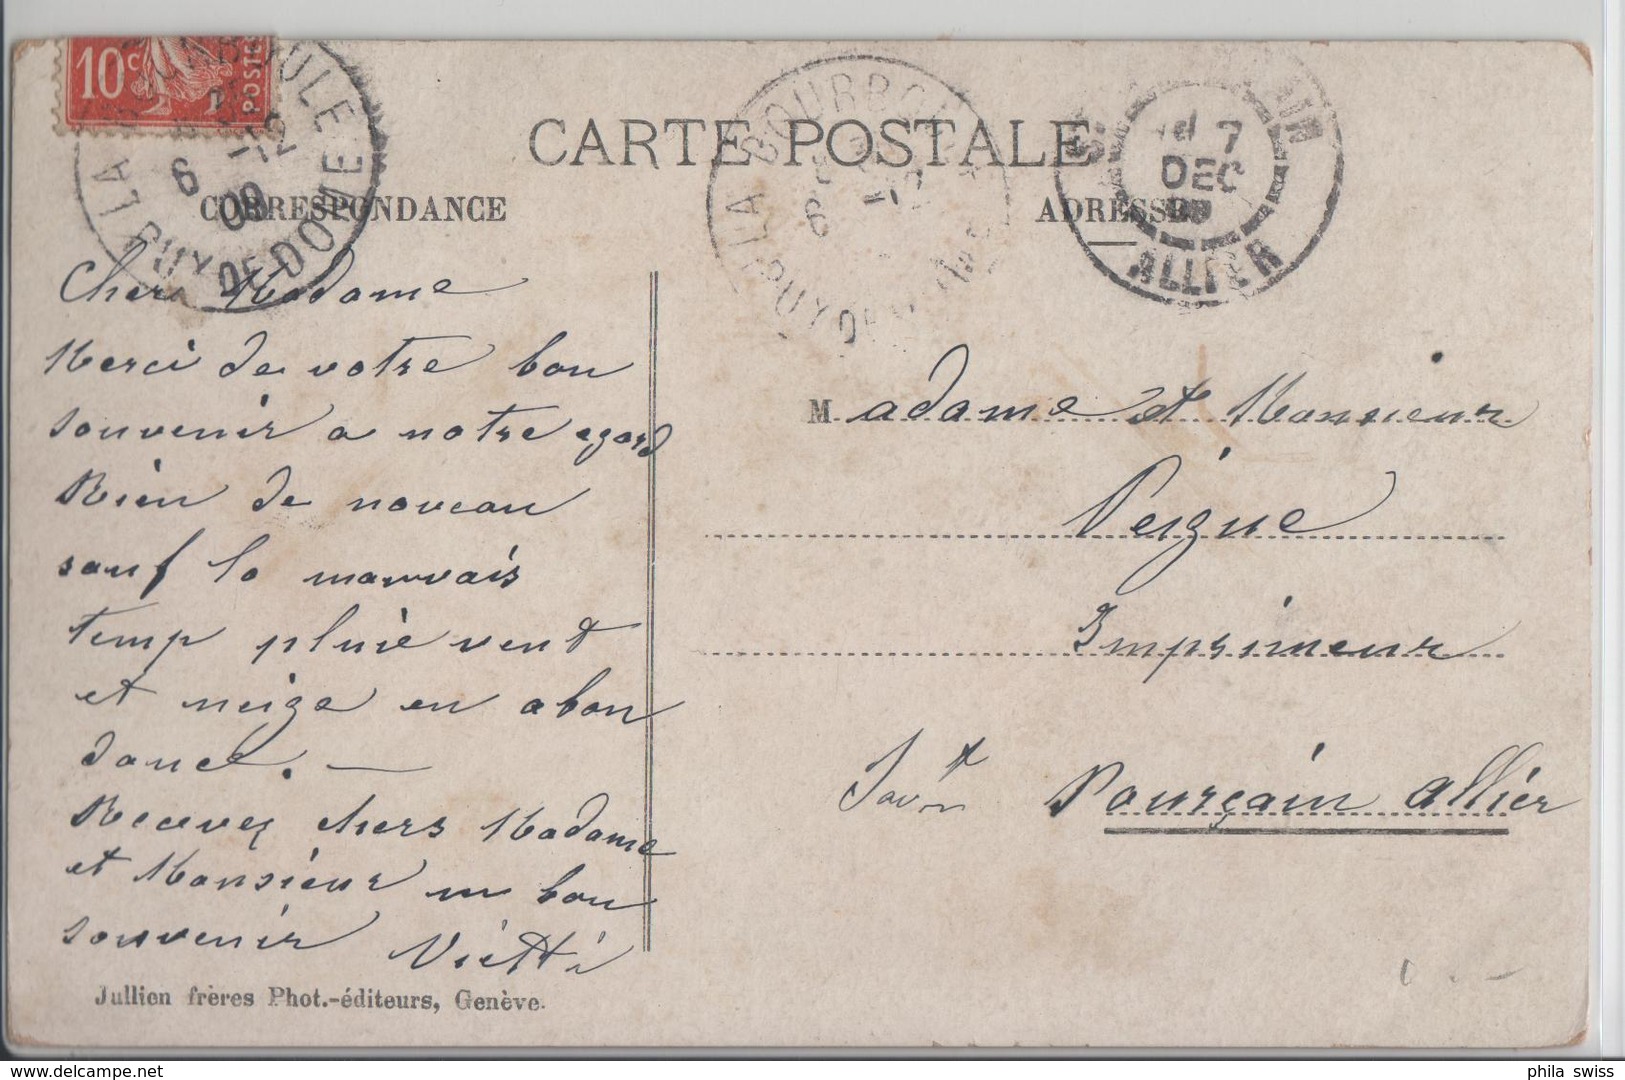 10c
POSTES
LA BOURBOULE
6 12
09
PUY DE DOME
LA BOURBOULE
6
12
PUY DE DOME
7
DEC
09
ALLIER
CARTE POSTALE
CORRESPONDANCE
ADRESSE
Cher Madame
Merci de votre bon
souvenir a notre egard
Rien de noveau
sauf lo mauvais
temp pluie vent
et neige en abon
dance. —
Recever chers Madame
et Monsieur un bon
souvenir Vietti
Madame et Monsieur
Peigue
Imprimeur
Sant Pourçain Allier
Jullien frères Phot.-éditeurs, Genève.
phila swiss